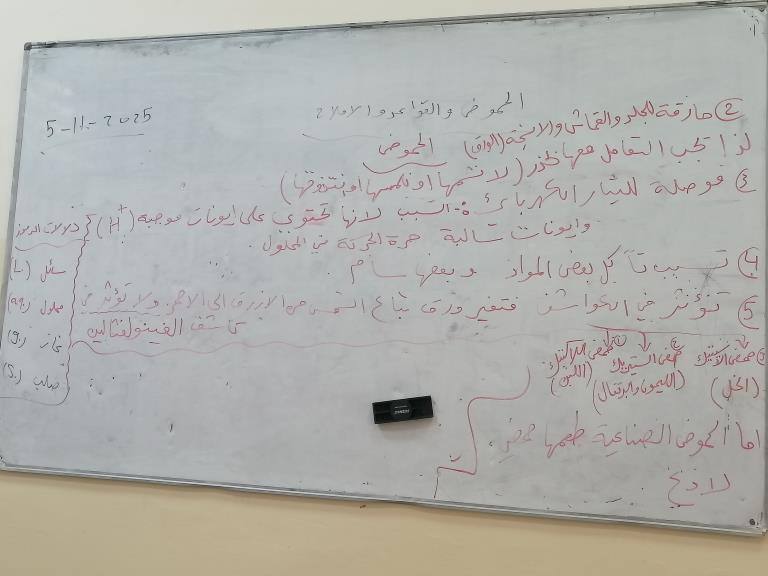 5-11-2025
الحموض والقواعد والاملاح
الحموض
② حارقة للجلد والقماش والانسجة (الواق)
لذا تجب التعامل معها بحذر (لا نشمها او نلمسها او نتذوقها)
③ موصلة للتيار الكهربائي: السبب لانها تحتوي على ايونات موجبة (H+)
وايونات سالبة حرة الحركة في المحلول.
④ تسبب تآكل بعض المواد وبعضها سام
⑤ تؤثر في الكواشف فتغير ورق تباع الشمس من الازرق الى الاحمر ولا تؤثر في
كاشف الفينولفثالين
دلالات الرموز
سائل (L)
محلول (aq)
غاز (g)
صلب (S)
① حمض الأسيتيك
(الخل)
② حمض الستريك
(الليمون والبرتقال)
③ حمض اللاكتيك
(اللبن)
اما الحموض الصناعية طعمها حمضي
لاذع